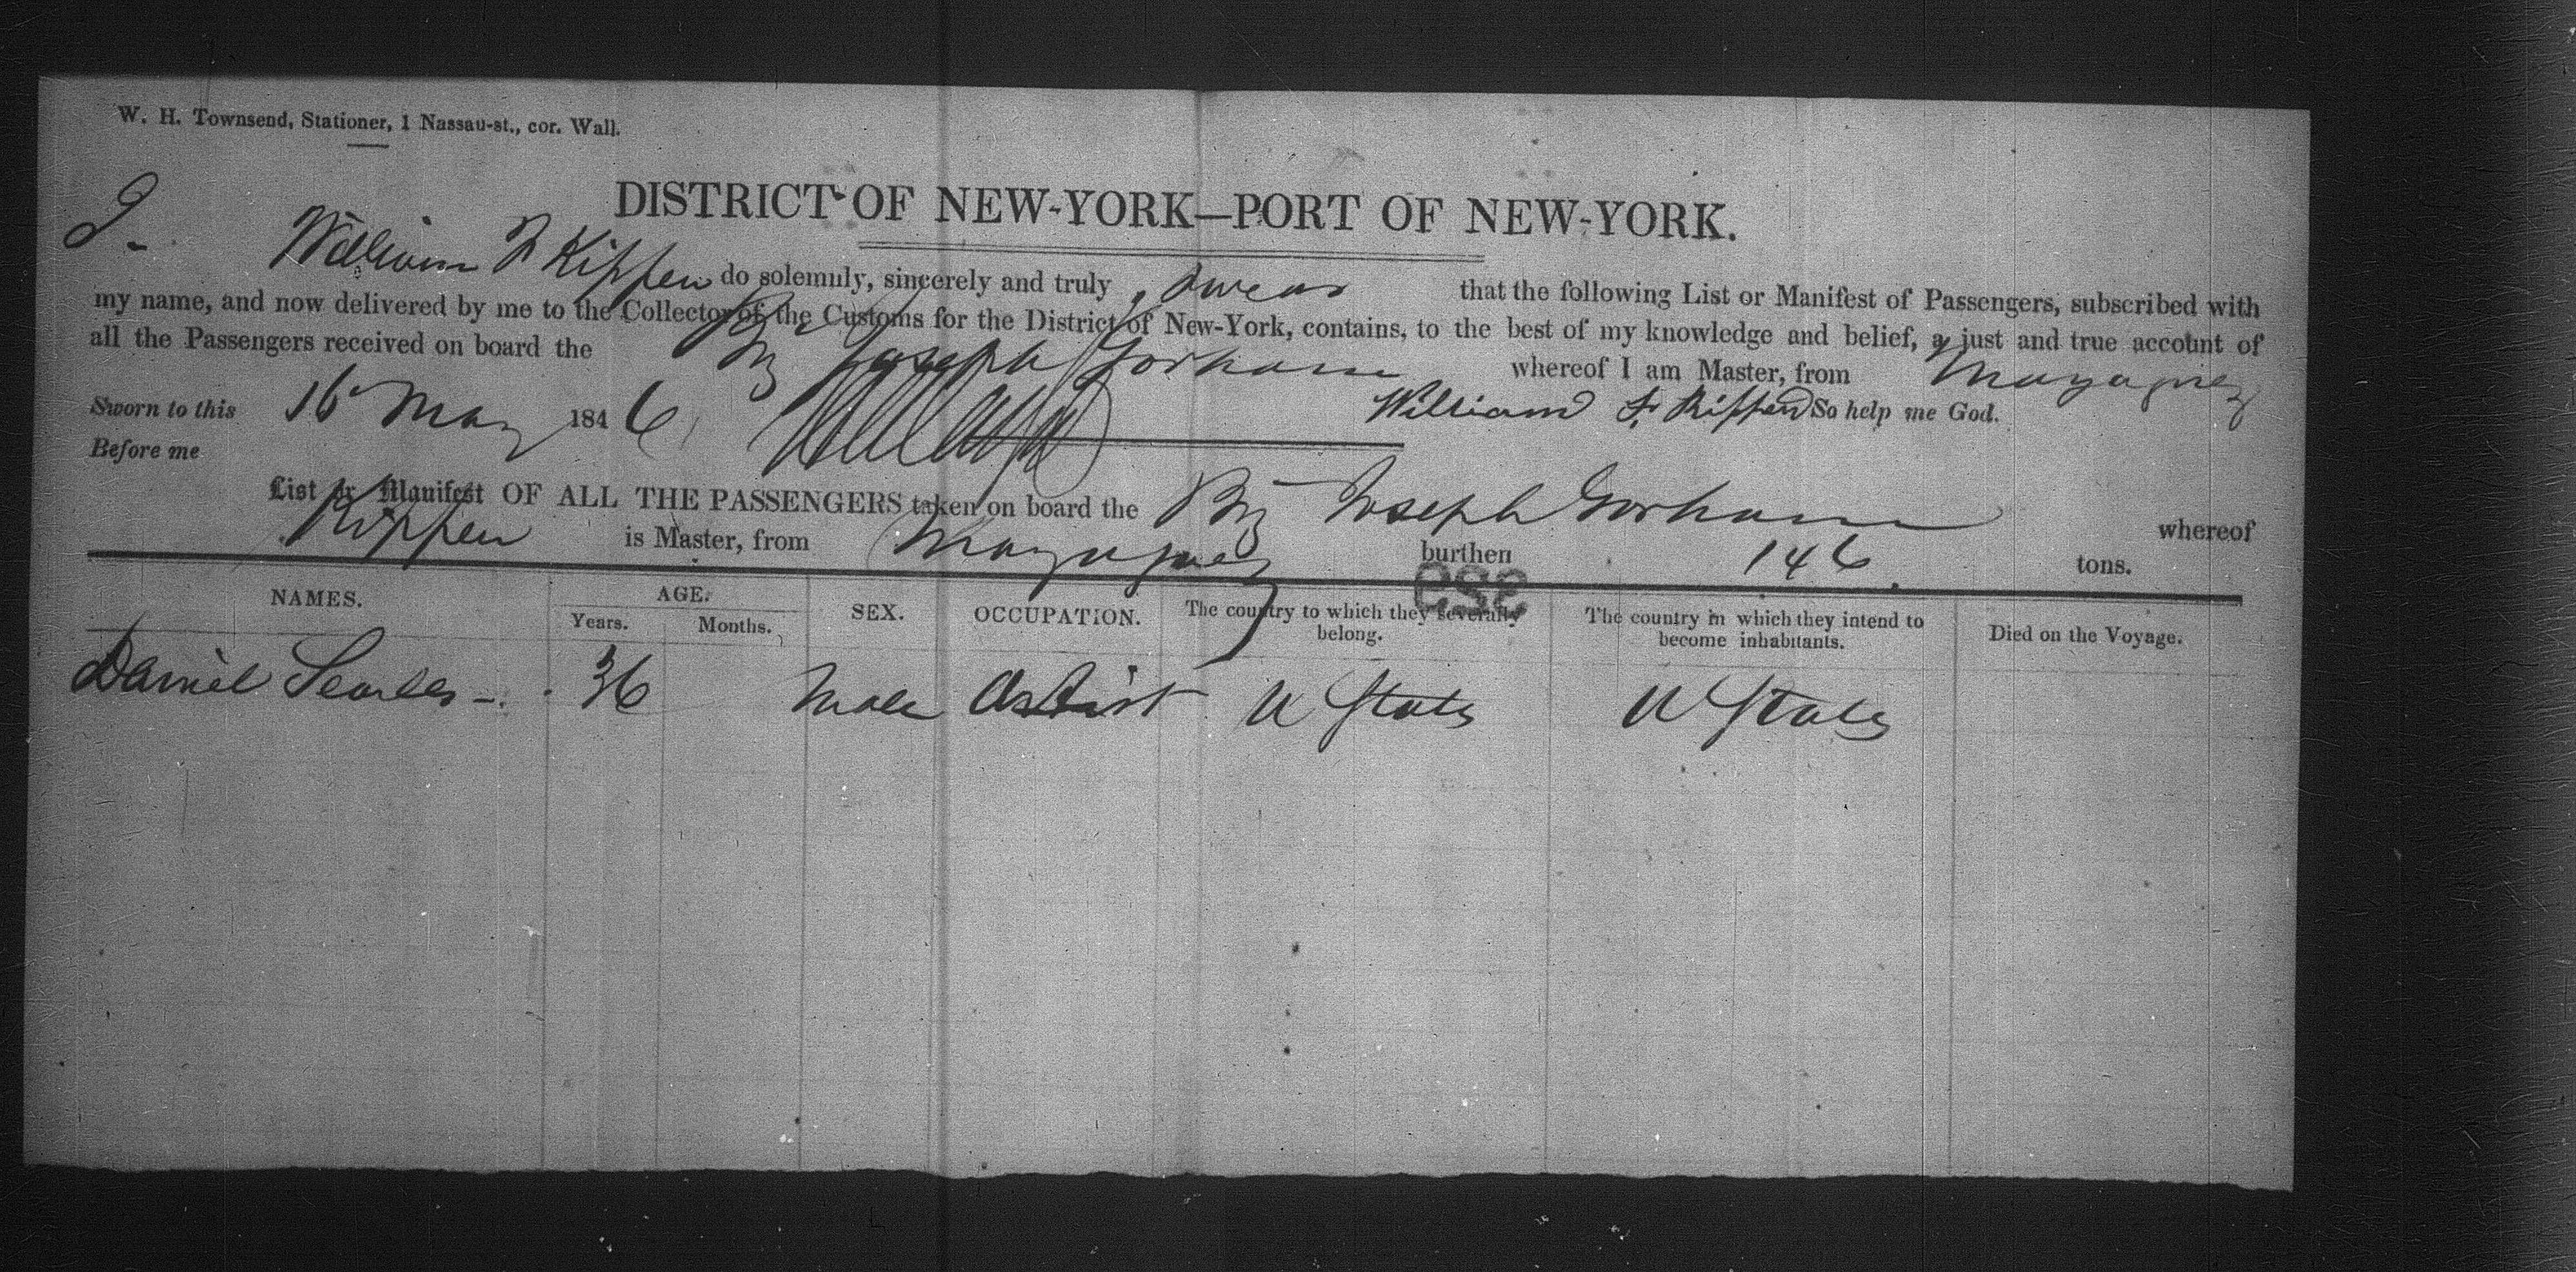 W. H. Townsend, Stationer, 1 Nassau-st., cor. Wall.
DISTRICT OF NEW-YORK—PORT OF NEW-YORK.
I William F Kippen do solemnly, sincerely and truly swear that the following List or Manifest of Passengers, subscribed with
my name, and now delivered by me to the Collector of the Customs for the District of New-York, contains, to the best of my knowledge and belief, a just and true account of
all the Passengers received on board the Brig Joseph Gorham whereof I am Master, from Mayaguez
Sworn to this 16 May 1846 William F. Kippen So help me God.
Before me
List or Manifest OF ALL THE PASSENGERS taken on board the Brig Joseph Gorham whereof
Kippen is Master, from Mayaguez burthen 146 tons.
NAMES. AGE. SEX. OCCUPATION. The country to which they severally belong. The country in which they intend to become inhabitants. Died on the Voyage.
Years. Months.
Daniel Searles 36 Male Artist U States U States